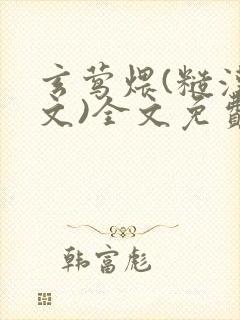 玄莺煨(糙汉
文)全文免费
韩富彪